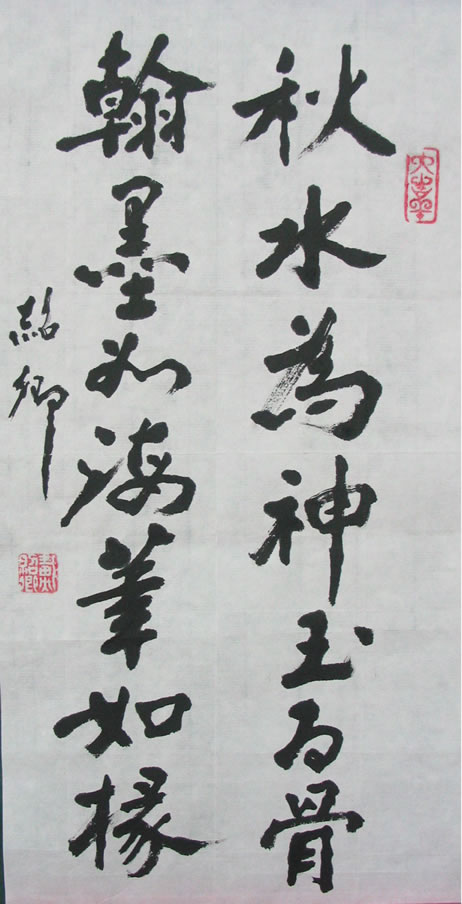 秋水為神玉为骨
翰墨如海筆如椽
紹卿